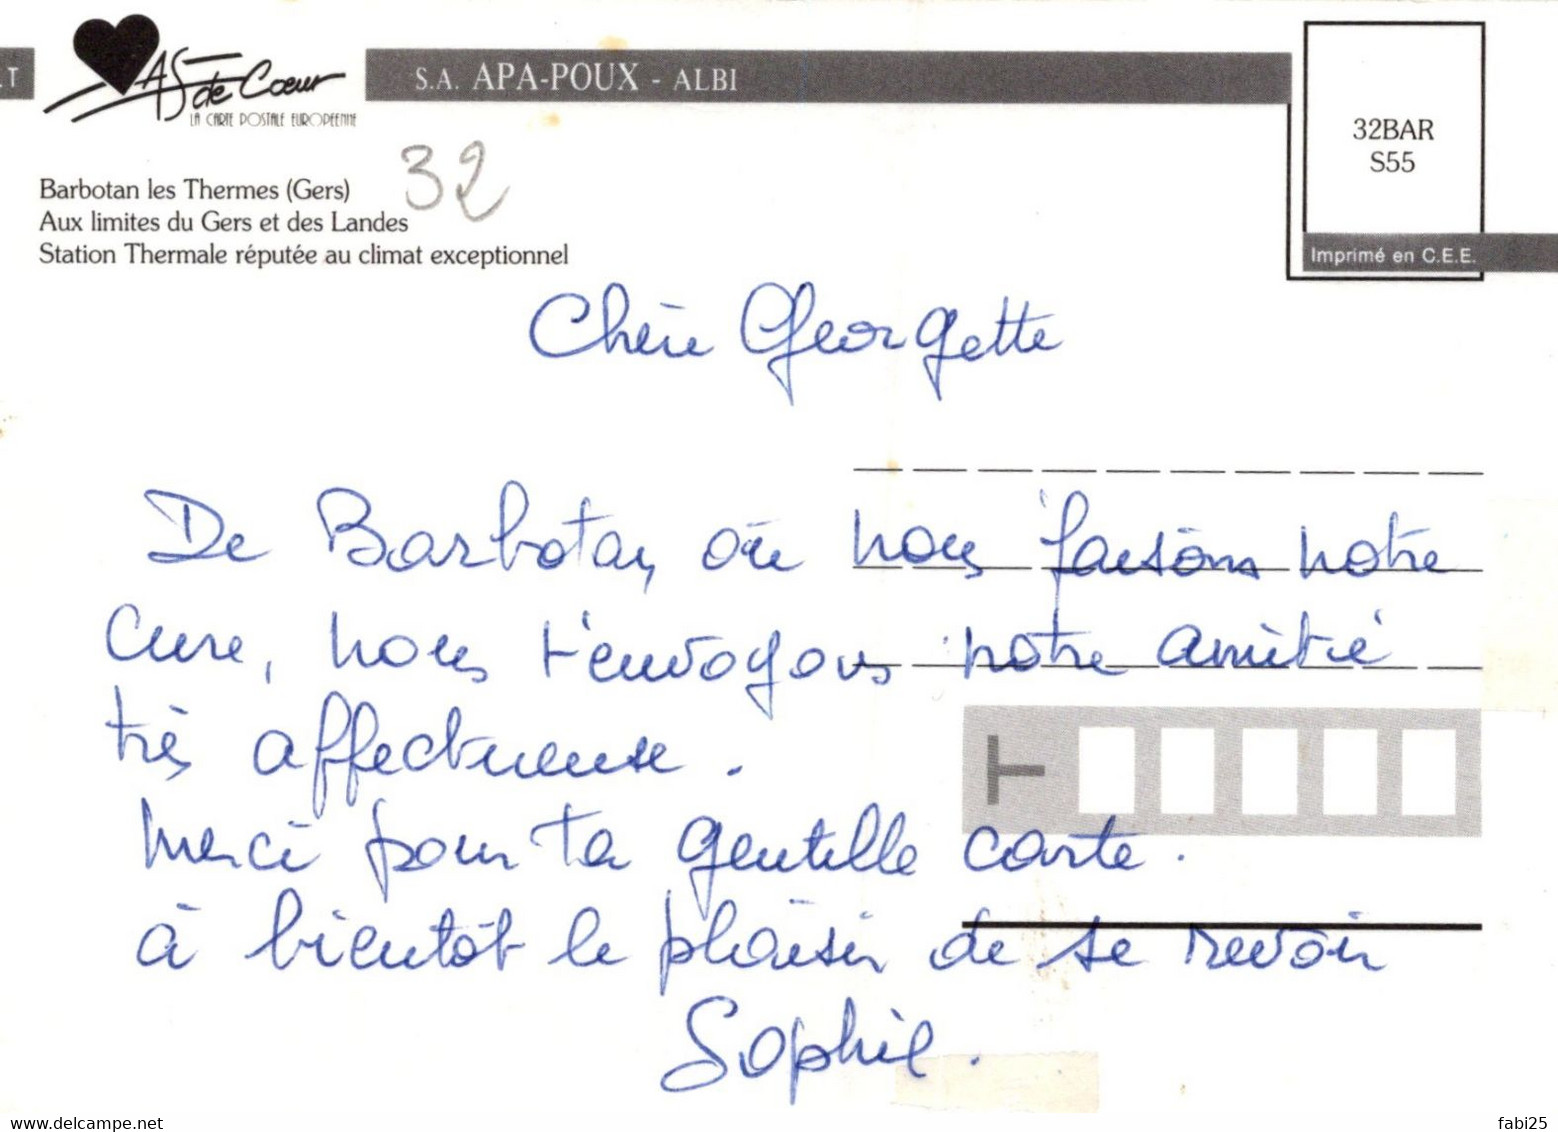 .T
AS de Cœur
LA CARTE POSTALE EUROPÉENNE
S.A. APA-POUX - ALBI
32BAR
S55
Imprimé en C.E.E.
32
Barbotan les Thermes (Gers)
Aux limites du Gers et des Landes
Station Thermale réputée au climat exceptionnel
Chère Georgette
De Barbotan, où nous faisons notre
cure, nous t'envoyons notre amitié
très affectueuse.
Merci pour ta gentille carte.
à bientôt le plaisir de se revoir
Sophie.
delcampe.net
fabi25